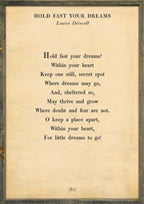 HOLD FAST YOUR DREAMS
Louise Driscoll
Hold fast your dreams!
Within your heart
Keep one still, secret spot
Where dreams may go,
And, sheltered so,
May thrive and grow
Where doubt and fear are not.
O keep a place apart,
Within your heart,
For little dreams to go!